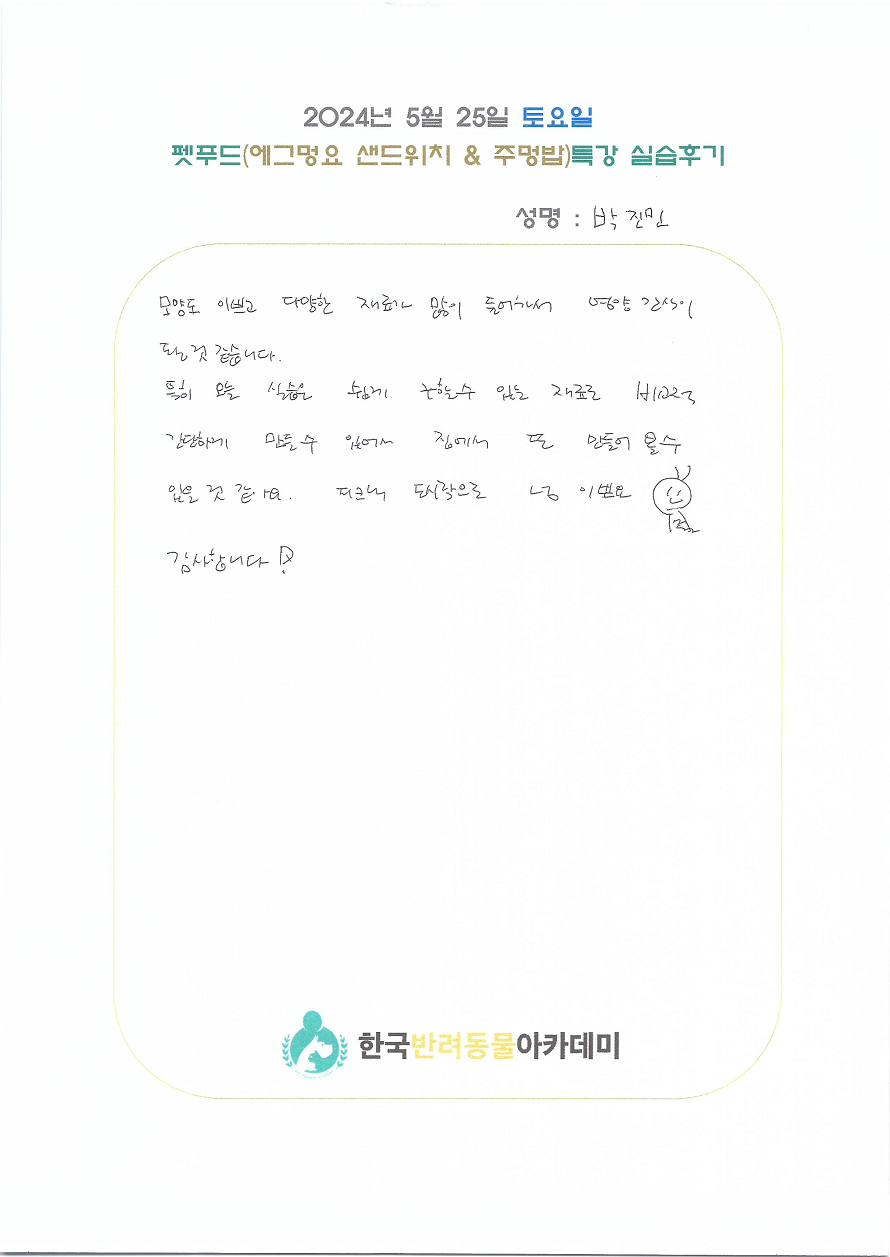 2024년 5월 25일 토요일
펫푸드(에그멍요 샌드위치 & 주멍밥)특강 실습후기
성명 : 박진민
모양도 이쁘고 다양한 재료가 많이 들어가서 영양 간식이
될 것 같습니다.
특히 오늘 실습은 쉽게 구할수 있는 재료로
간단하게 만들수 있어서 집에서 또 만들어 볼수
있을 것 같아요. 피크닉 도시락으로 넘 이뻐요
감사합니다
한국반려동물아카데미